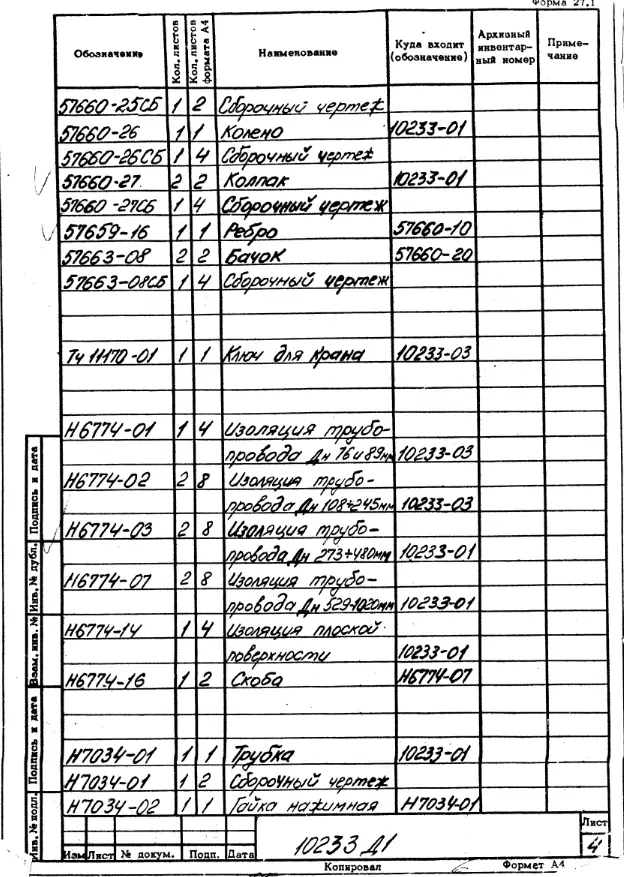 Форма 27.1
Обозначение Кол. листов Кол. листов формата А4 Наименование Куда входит (обозначение) Архивный инвентарный номер Примечание
57660-25СБ 1 2 Сборочный чертеж
57660-26 1 1 Колено 10233-01
57660-26СБ 1 4 Сборочный чертеж
57660-27 2 2 Колпак 10233-01
57660-27СБ 1 4 Сборочный чертеж
57659-16 1 1 Ребро 57660-10
57663-08 2 2 Бачок 57660-20
57663-08СБ 1 4 Сборочный чертеж
Тч 11170-01 1 1 Ключ для крана 10233-03
Н6774-01 1 4 Изоляция трубо-
провода Дн 76 и 89мм 10233-03
Н6774-02 2 8 Изоляция трубо-
провода Дн 108÷245мм 10233-03
Н6774-03 2 8 Изоляция трубо-
провода Дн 273÷480мм 10233-01
Н6774-07 2 8 Изоляция трубо-
провода Дн 529-1020мм 10233-01
Н6774-14 1 4 Изоляция плоской
поверхности 10233-01
Н6774-16 1 2 Скоба Н6774-07
Н7034-01 1 1 Трубка 10233-01
Н7034-01 1 2 Сборочный чертеж
Н7034-02 1 1 Гайка нажимная Н7034-01
Подпись и дата
Инв. № дубл.
Взам. инв. №
Подпись и дата
Инв. № подл.
Изм Лист № докум. Подп. Дата
10233 Д1
Лист
4
Копировал Формат А4